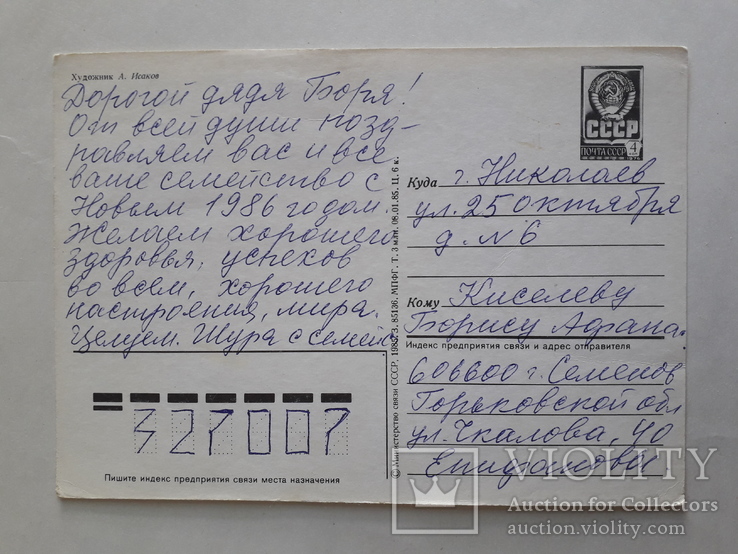 Художник А. Исаков
Дорогой дядя Боря!
От всей души позд-
равляем вас и все
ваше семейство с
Новым 1986 годом.
Желаем хорошего
здоровья, успехов
во всем, хорошего
настроения, мира.
Целуем. Шура с семьей
СССР
ПОЧТА СССР 4
Куда г. Николаев
ул. 25 октября
д. № 6
Кому Киселеву
Борису Адрана.
Индекс предприятия связи и адрес отправителя
606600 г. Семенов
Горьковской обл
ул. Чкалова, 40
Епифановы.
327007
Пишите индекс предприятия связи места назначения
© Министерство связи СССР. 1985. З. 85136. МПФГ. Т. 3 млн. 08.01.85. Ц. 6 к.
VIOLITY
Auction for Collectors
auction.violity.com